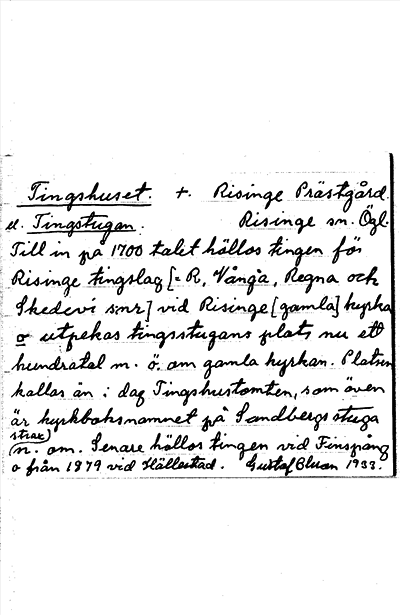 Tingshuset. +. Risinge Prästgård.
el. Tingstugan. Risinge sn. Ögl.
Till in på 1700 talet höllos tingen för
Risinge tingslag [= R, Vånga, Regna och
Skedevi snr] vid Risinge [gamla] kyrka
o utpekas tingsstugans plats nu ett
hundratal m. ö. om gamla kyrkan. Platsen
kallas än i dag Tingshustomten, som även
är kyrkboksnamnet på Sandbergs stuga
(strax) n. om. Senare höllos tingen vid Finspång
o från 1879 vid Hällestad. Gustaf 1933.